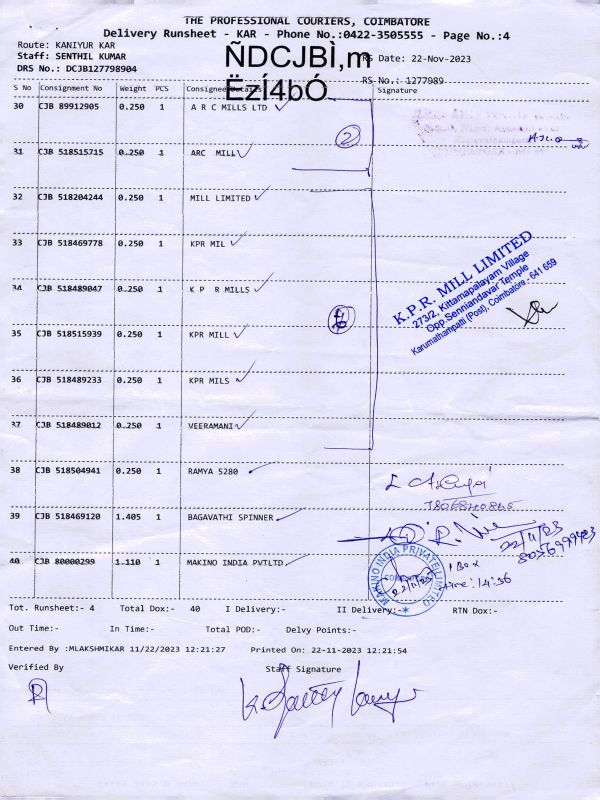 THE PROFESSIONAL COURIERS, COIMBATORE
Delivery Runsheet - KAR - Phone No.:0422-3505555 - Page No.:4
Route: KANIYUR KAR
Staff: SENTHIL KUMAR RS Date: 22-Nov-2023
DRS No.: DCJB127798904
RS No.: 1277989
ÑDCJBÌ,m
Ëzí4bÓ
S No Consignment No Weight PCS Consignee Details Signature
30 CJB 89912905 0.250 1 A R C MILLS LTD
2
31 CJB 518515715 0.250 1 ARC MILL
32 CJB 518204244 0.250 1 MILL LIMITED
33 CJB 518469778 0.250 1 KPR MIL
34 CJB 518489047 0.250 1 K P R MILLS
K.P.R. MILL LIMITED
273/2, Kittampalayam Village
Opp Senniandavar Temple
Karumathampatti (Post), Coimbatore - 641 659
35 CJB 518515939 0.250 1 KPR MILL
36 CJB 518489233 0.250 1 KPR MILS
37 CJB 518489012 0.250 1 VEERAMANI
38 CJB 518504941 0.250 1 RAMYA 5280
39 CJB 518469120 1.405 1 BAGAVATHI SPINNER
22/11/23
40 CJB 80000299 1.110 1 MAKINO INDIA PVTLTD
MAKINO INDIA PRIVATE LIMITED
1 Box
Time: 14:36
Tot. Runsheet:- 4 Total Dox:- 40 I Delivery:- II Delivery:- RTN Dox:-
Out Time:- In Time:- Total POD:- Delvy Points:-
Entered By :MLAKSHMIKAR 11/22/2023 12:21:27 Printed On: 22-11-2023 12:21:54
Verified By Staff Signature